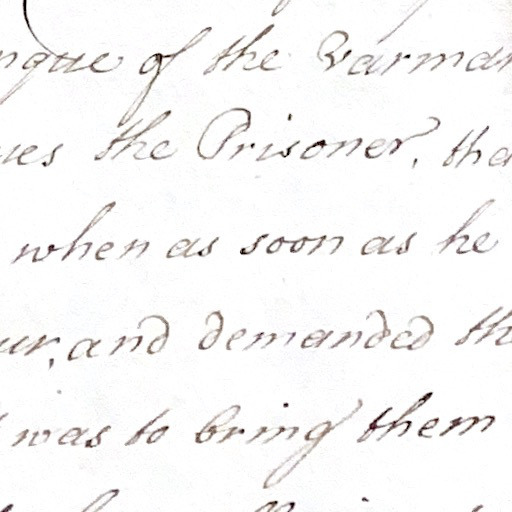 of the Varman
the Prisoner, tha
when as soon as he
ur, and demanded th
was to bring them